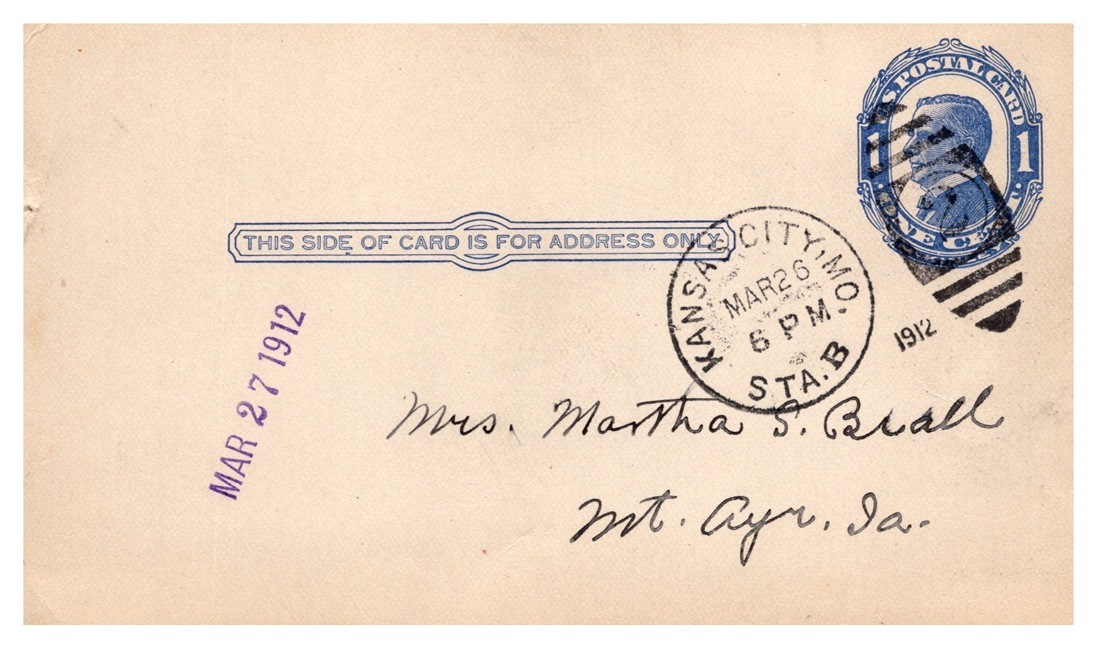 U.S. POSTAL CARD
1 1
THIS SIDE OF CARD IS FOR ADDRESS ONLY
KANSAS CITY, MO.
MAR 26
6 PM.
STA. B
1912
MAR 27 1912
Mrs. Martha S. Beall
Mt. Ayr, Ia.